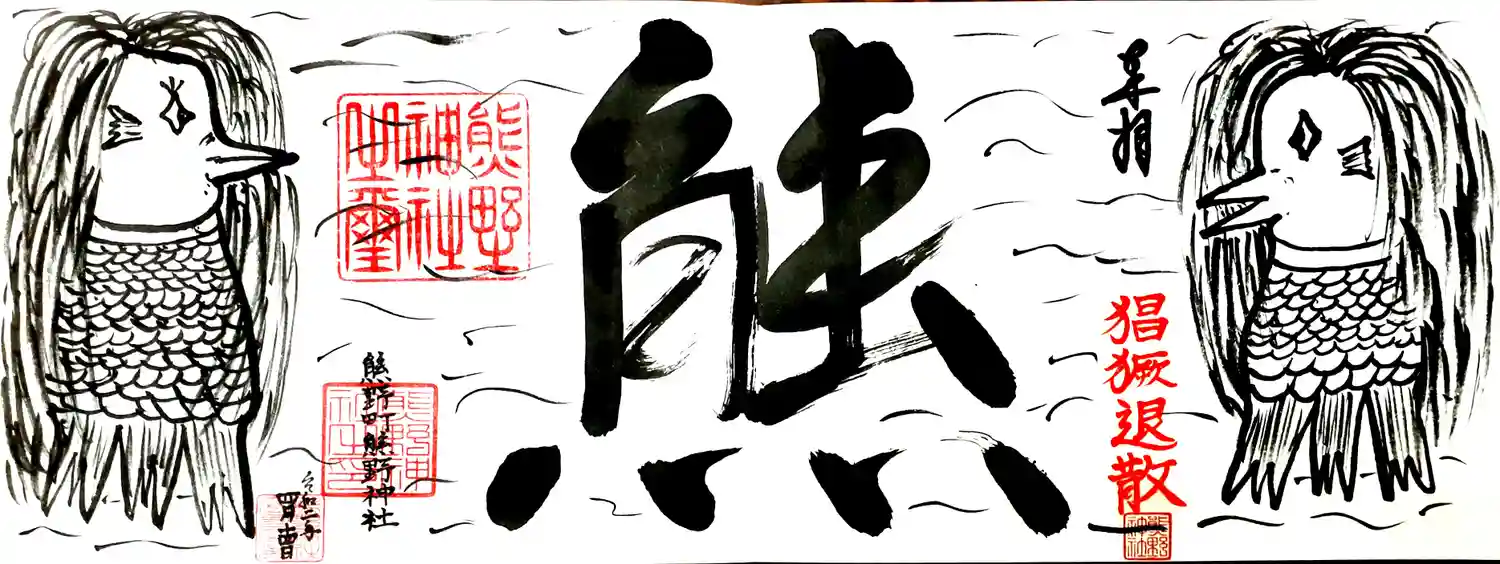 奉拝
猖獗退散
熊野神社
熊
熊野神社神璽
熊野町熊野神社
熊野神社之印
令和二年